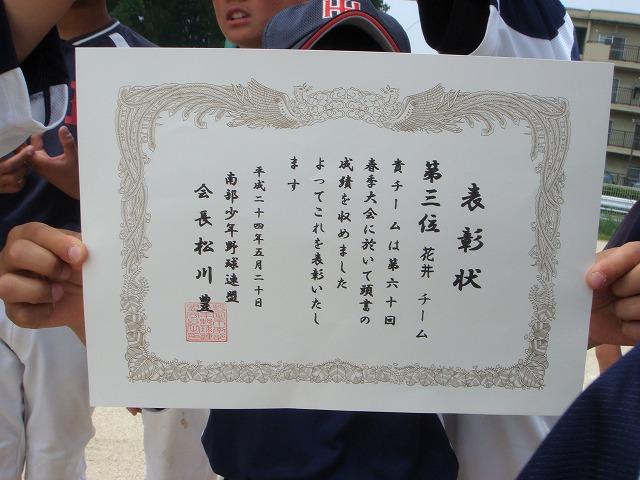 表彰状
第三位 花井 チーム
貴チームは第六十回
春季大会に於いて頭書の
成績を収めました
よってこれを表彰いたし
ます
平成二十四年五月二十日
南部少年野球連盟
会長 松川 豊